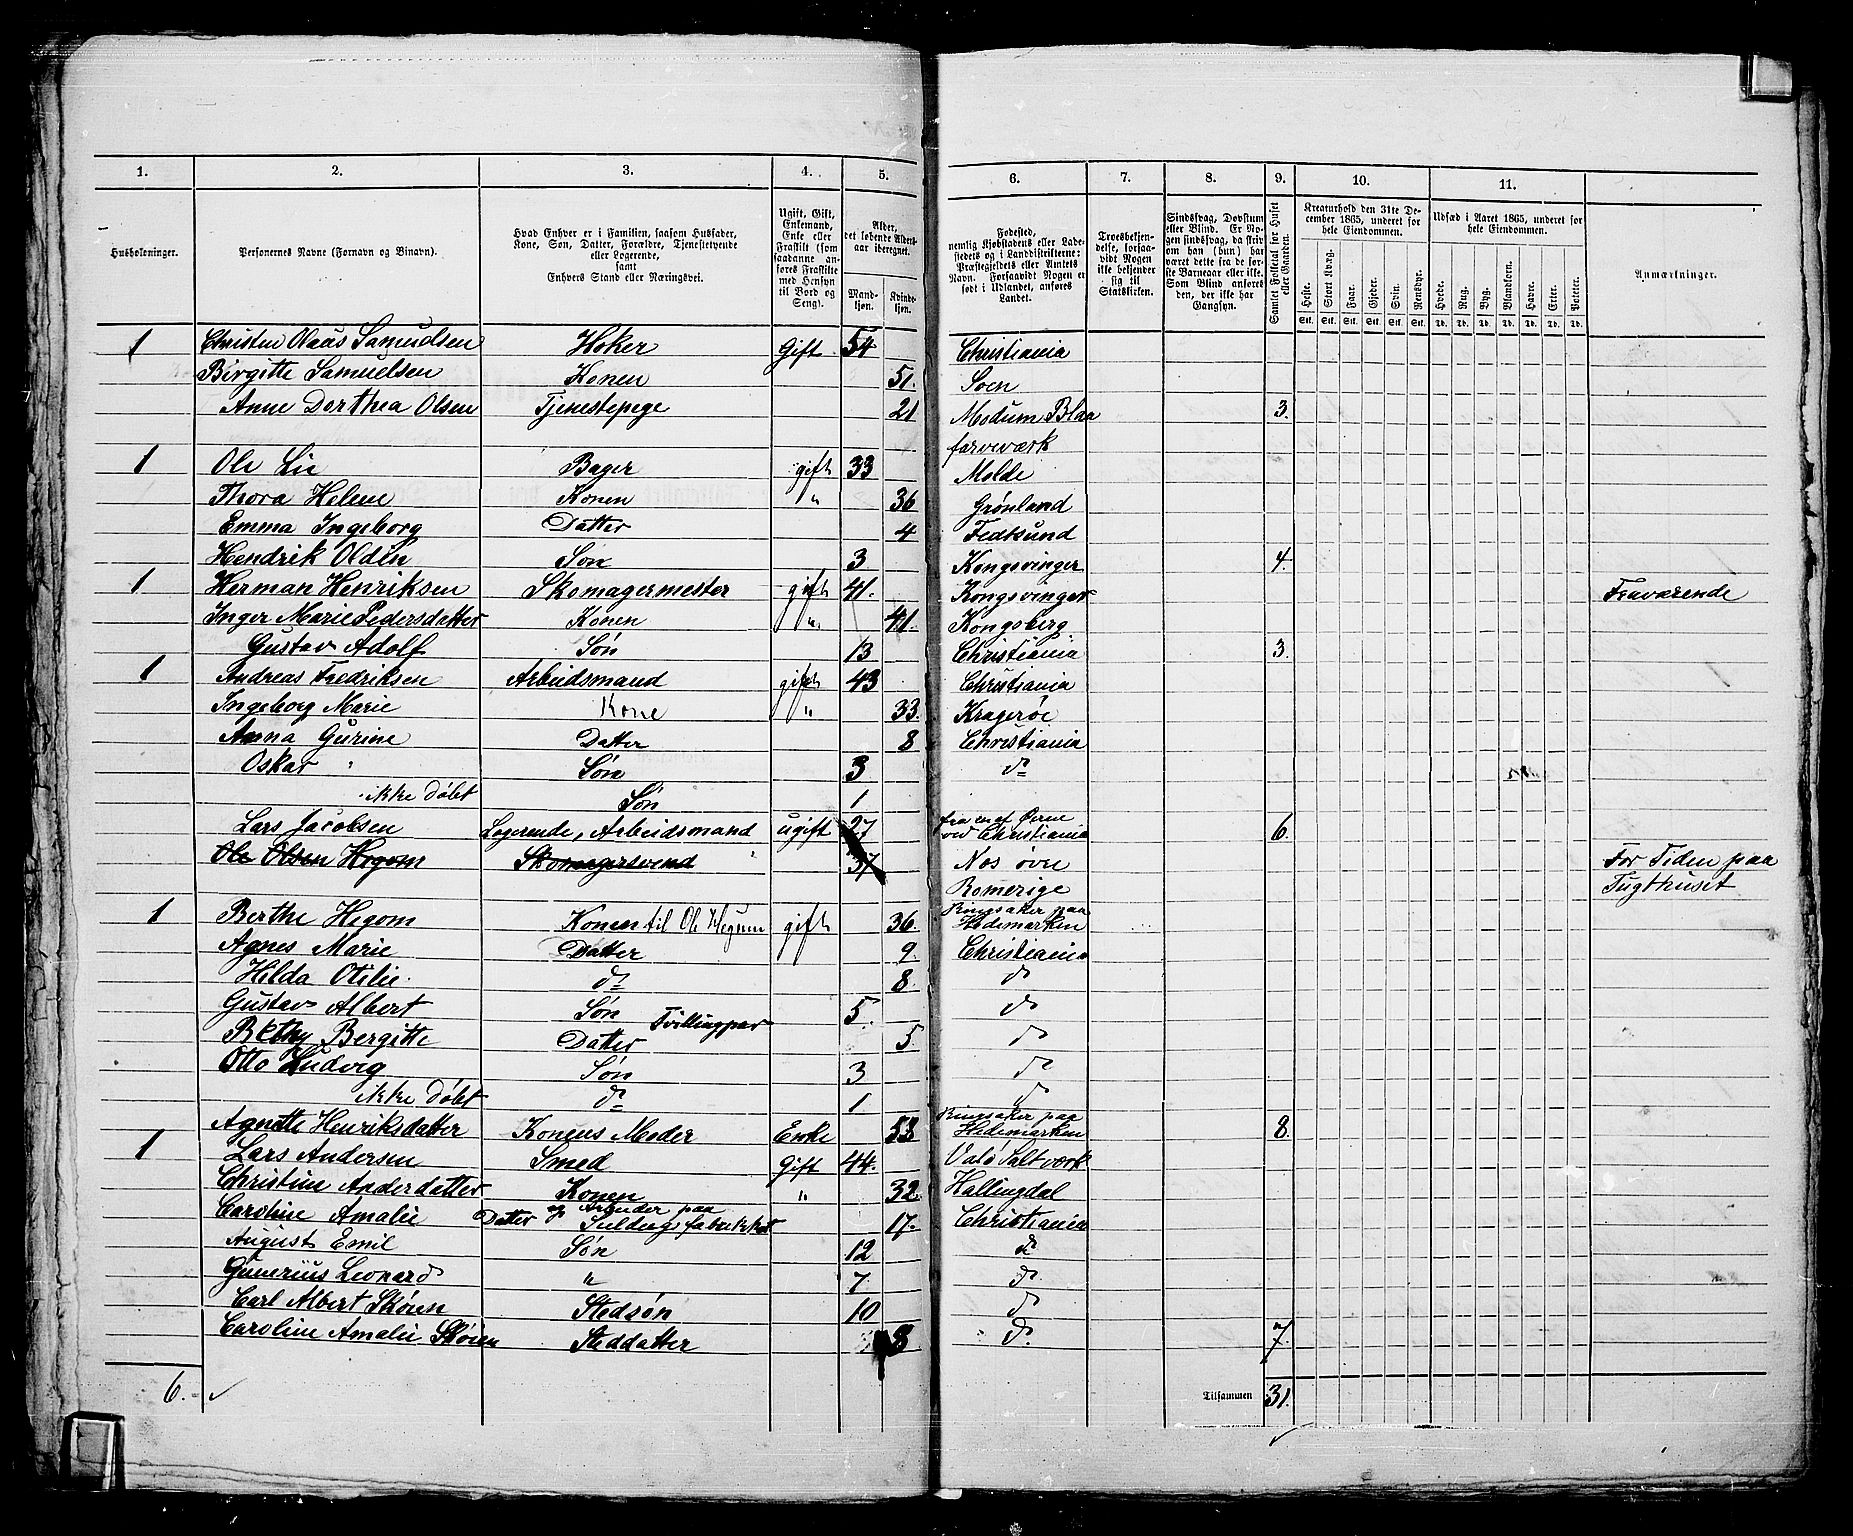 1. 2. 3. 4. 5. 6. 7. 8. 9. 10. 11.
Husholdninger.
Personernes Navne (Fornavn og Binavn).
Hvad Enhver er i Familien, saasom Husfader,
Kone, Søn, Datter, Forældre, Tjenestetyende
eller Logerende,
samt
Enhvers Stand eller Næringsvei.
Ugift, Gift,
Enkemand,
Enke eller
Fraskilt (som
saadanne an-
føres Fraskilte
med Hensyn
til Bord og
Seng).
Alder,
det løbende Alders-
aar iberegnet.
Mand-
kjøn.
Kvinde-
kjøn.
Fødested,
nemlig Kjøbstadens eller Lade-
stedets og i Landdistrikterne:
Præstegjeldets eller Amtets
Navn. Forsaavidt Nogen er
født i Udlandet, anføres
Landet.
Troesbekjen-
delse, forsaa-
vidt Nogen
ikke bekjender
sig til
Statskirken.
Sindssvag, Døvstum
eller Blind. Er No-
gen sindssvag, da skriv
om han (hun) har
været dette fra de før-
ste Barneaar eller ikke.
Som Blind anføres
den, der ikke har
Gangsyn.
Samlet Folketal for Huset
eller Gaarden.
Kreaturhold den 31te De-
cember 1865, underet for
hele Eiendommen.
Heste. Stort Kvæg. Faar. Gjeder. Svin. Rensdyr.
Stk. Stk. Stk. Stk. Stk. Stk.
Udsæd i Aaret 1865, underet for
hele Eiendommen.
Hvede. Rug. Byg. Blandkorn. Havre. Erter. Poteter.
Td. Td. Td. Td. Td. Td. Td.
Anmærkninger.
1 Christen Olaus Samuelsen Høker Gift 54 Christiania
Birgitte Samuelsen Konen 51. Soen
Anne Dorthea Olsen Tjenestepige 21 Modum Blaa 3.
farveværk
1 Ole Lie Bager gift 33 Molde
Thora Helene Konen " 36 Grønland
Emma Ingeborg Datter 4 Fedtsund
Hendrik Olden Søn 3 Kongsvinger 4.
1 Herman Henriksen Skomagermester gift 41. Kongsvinger Fraværende
Inger Marie Pedersdatter Konen " 41. Kongsberg
Gustav Adolf Søn 13 Christiania 3.
1 Andreas Fredriksen Arbeidsmand gift 43 Christiania
Ingeborg Marie Kone " 33. Kragerøe
Anna Gurine Datter 8 Christiania
Oskar " Søn 3 do
ikke Døbt Søn 1
Lars Jacobsen Logerende, Arbeidsmand ugift 27 ved Christiania 6.
Ole Olsen Hegom Skomagersvend " 37 Nes øvre For Tiden paa
Romerige Tugthuset
1 Berthe Hegom Konen til Ole Hegum gift 36. Ringsaker paa
Hedemarken
Agnes Marie Datter 9. Christiania
Hilda Otilie do 8. do
Gustav Albert Søn 5. do
Tvillingpar
Bethy Bergitte Datter 5 do
Otto Ludvig Søn 3 do
ikke Døbt do 1 do
Agnette Henriksdatter Konens Moder Enke 53 Ringsaker paa
Hedemarken 8.
1 Lars Andersen Smed Gift 44. Valø Saltværk
Christine Anderdatter Konen " 32 Hallingdal
Caroline Amalie Datter og Arbeider paa
Seildugsfabrikket 17. Christiania
August Emil Søn 12 do
Gunerius Leonard " 7. do
Carl Albert Skøien Stedsøn 10 do
Caroline Amalie Skøien Steddatter 8 do. 7.
6. ✓ Tilsammen 31.
✓